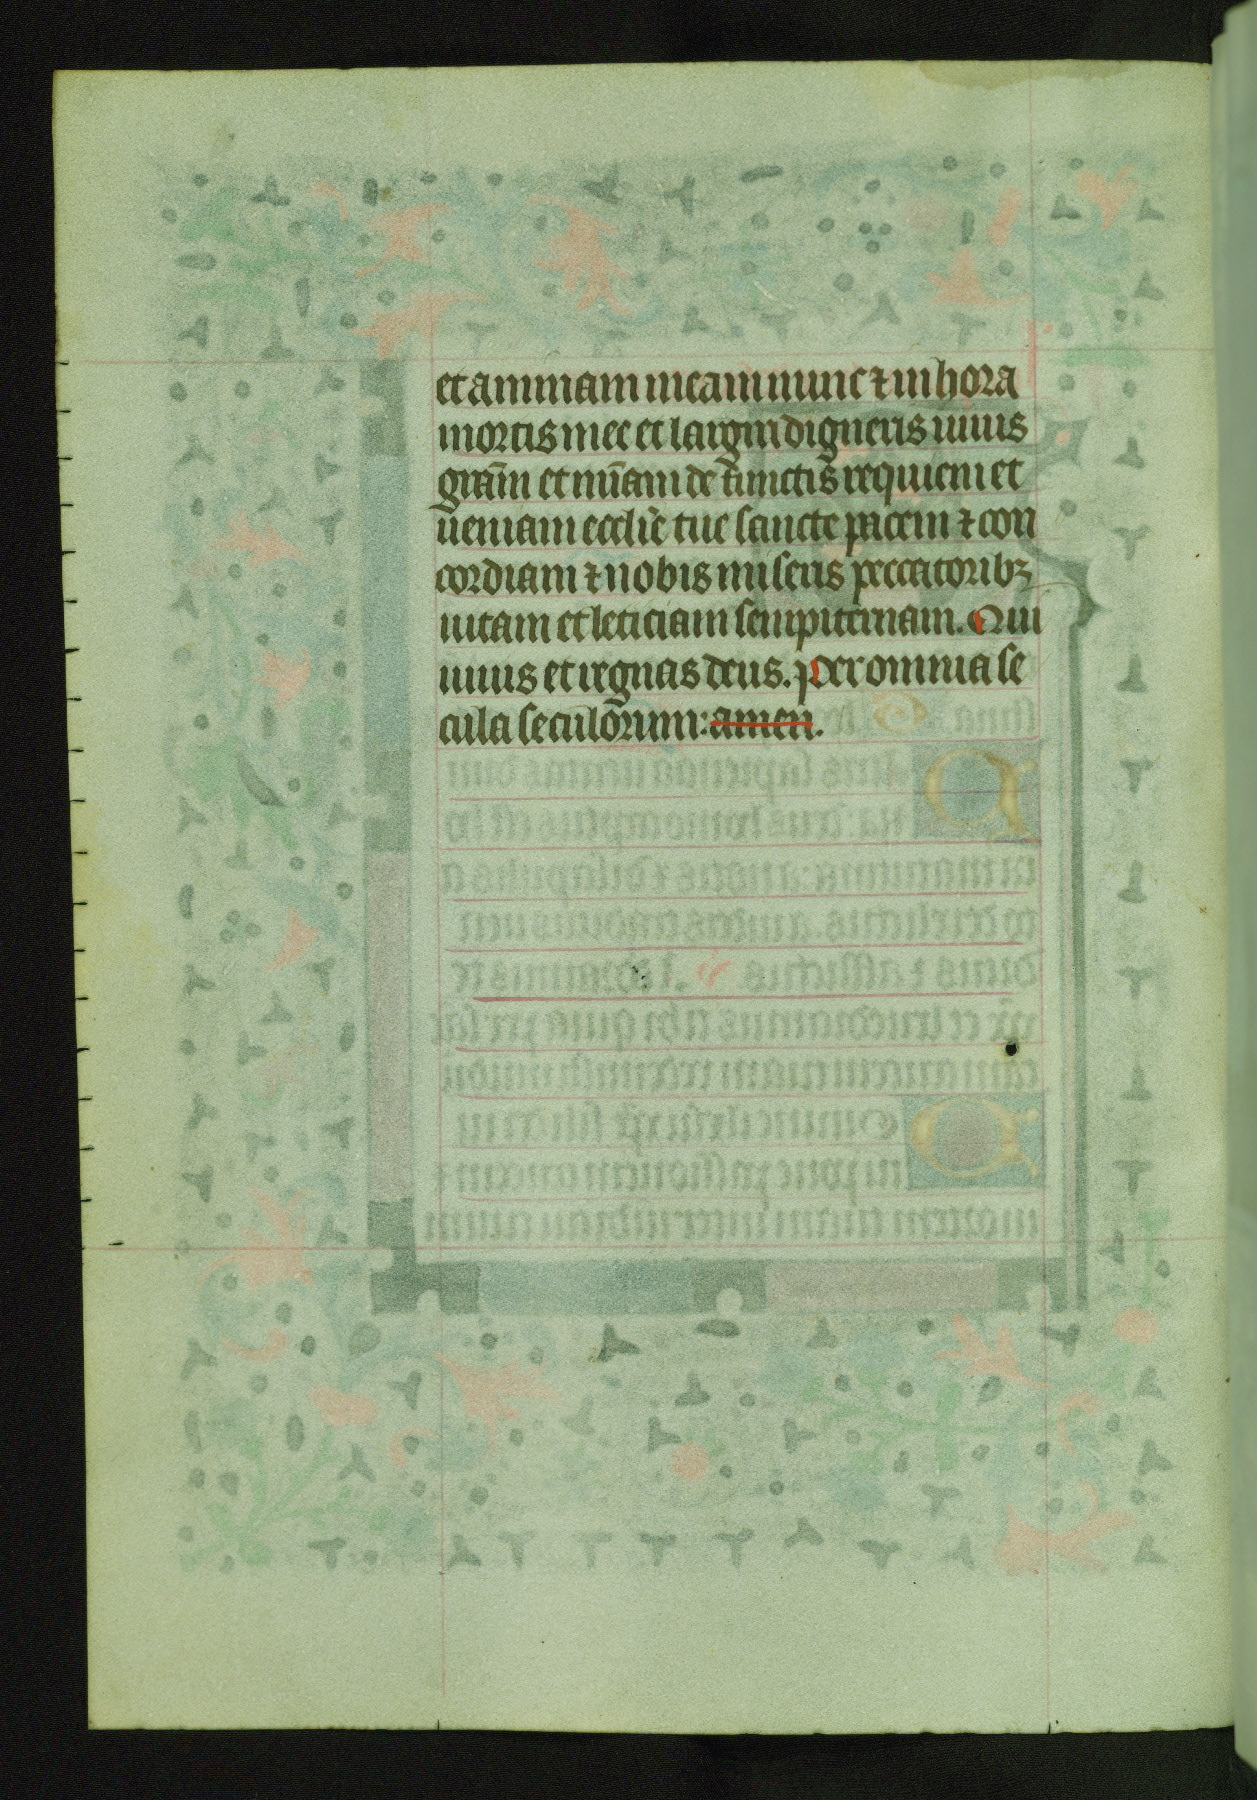 et animam meam nunc ⁊ in hora
mortis mee et largiri digneris uiuis
gr̄am et mīam defunctis requiem et
ueniam eccl̄ie tue sancte pacem ⁊ con
cordiam ⁊ nobis miseris peccatoribꝫ
uitam et leticiam sempiternam. Qui
uiuis et regnas deus. Per omnia se
cula seculorum: amen.